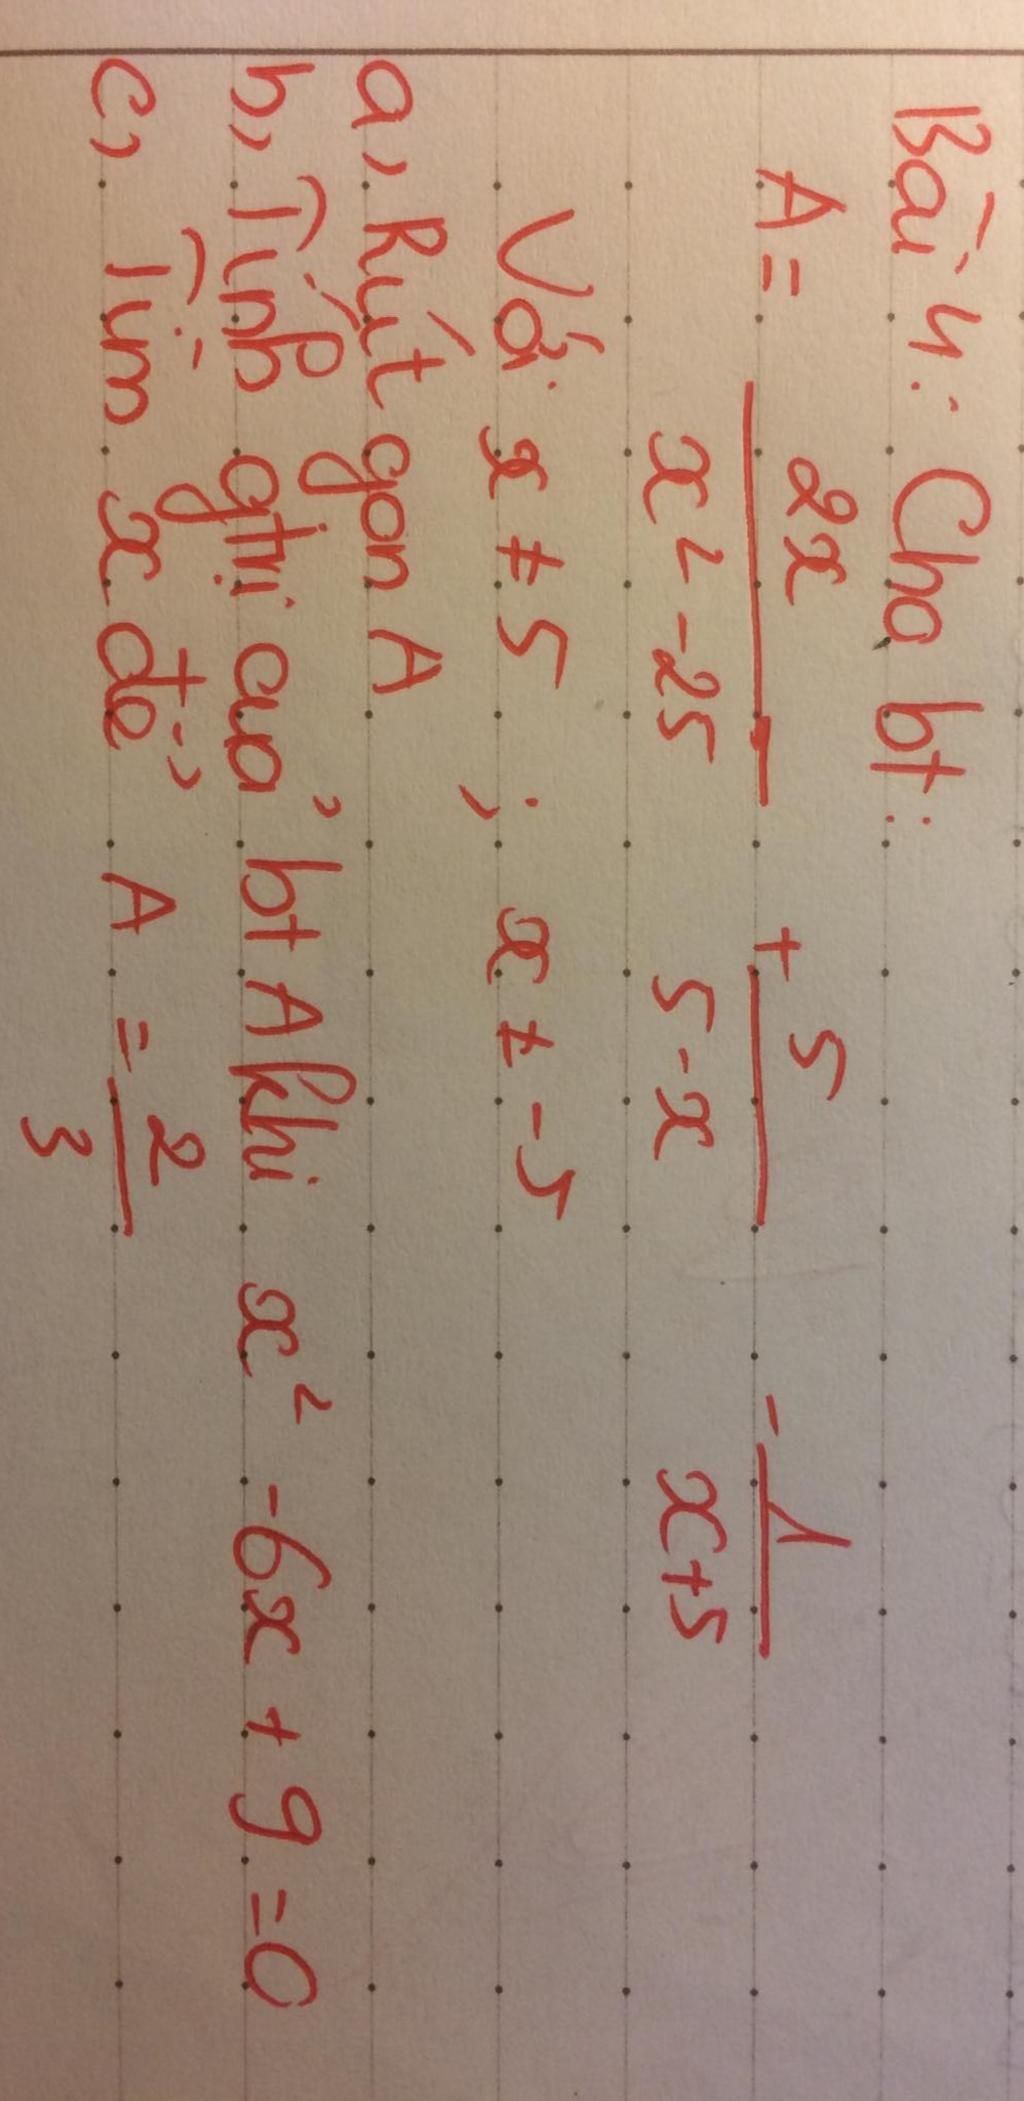 Bài 4: Cho bt:
A = 2x / x² - 25 + 5 / 5 - x - 1 / x + 5
Với x ≠ 5 ; x ≠ -5
a, Rút gọn A
b, Tính gtrị của bt A khi x² - 6x + 9 = 0
c, Tìm x để A = 2/3